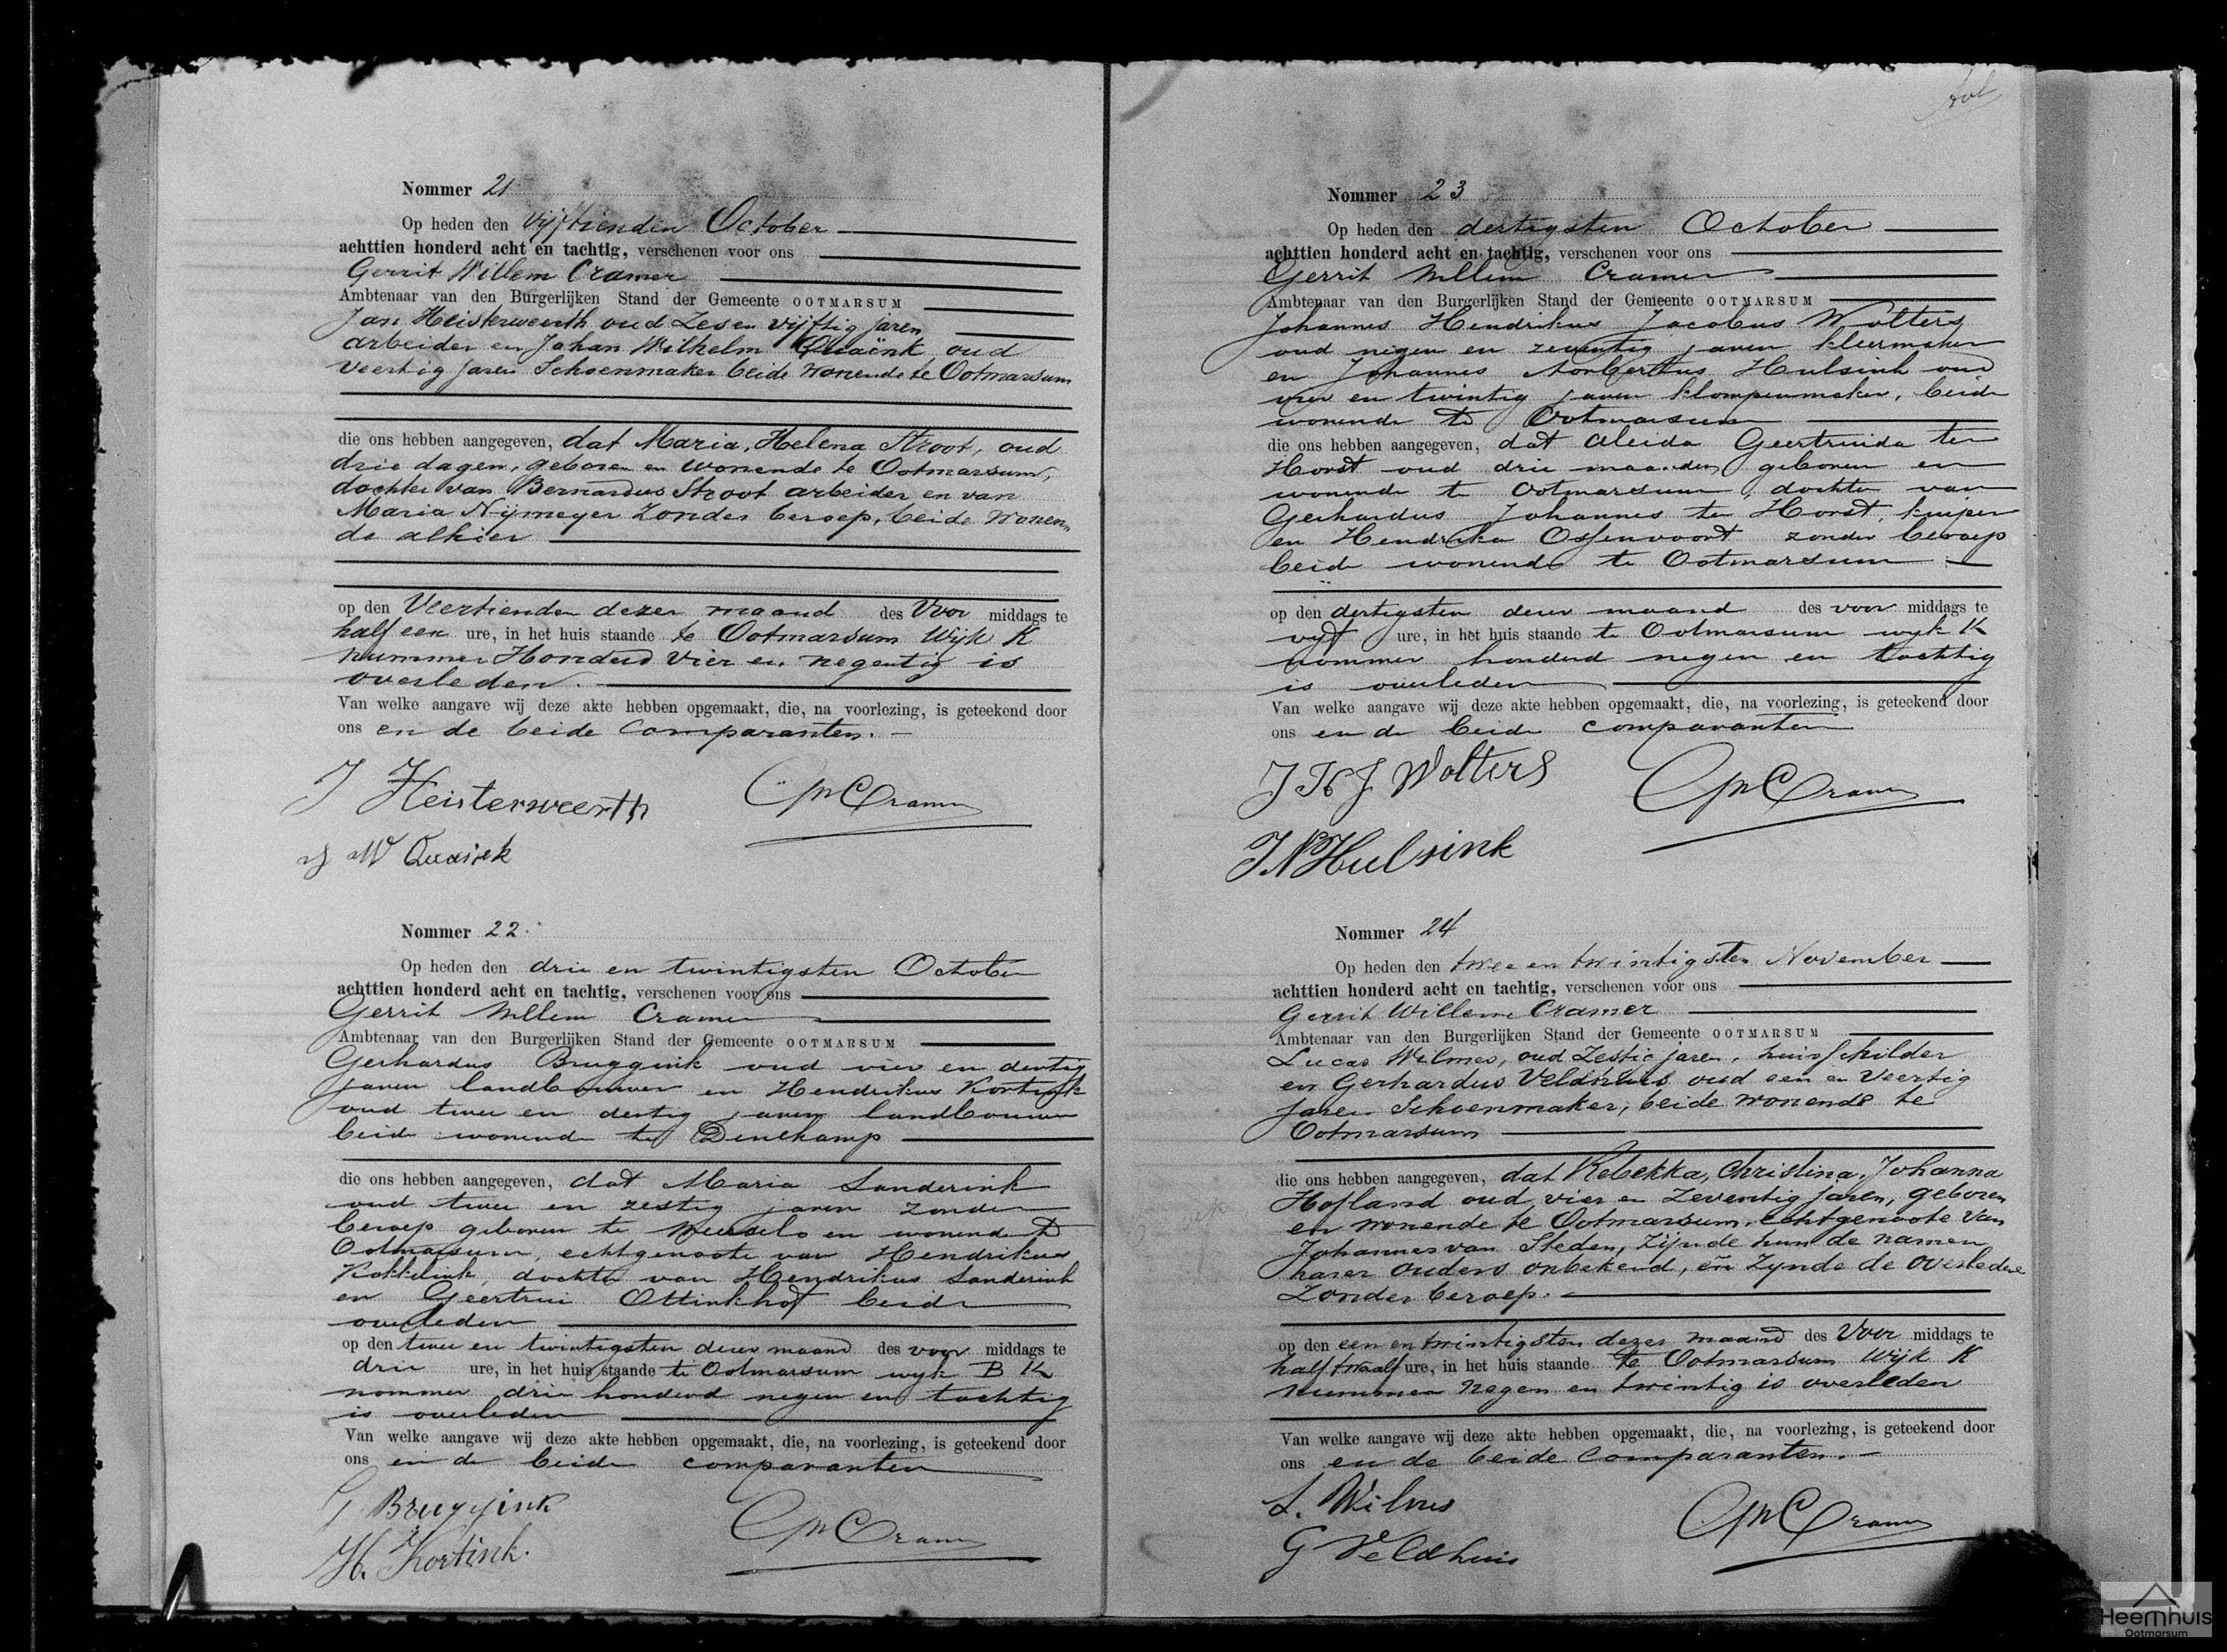 Nommer 21.
Op heden den Vijftienden October
achttien honderd acht en tachtig, verschenen voor ons
Gerrit Willem Cramer
Ambtenaar van den Burgerlijken Stand der Gemeente OOTMARSUM
Jan Heisterweerth oud Zes en vijftig jaren
arbeider en Johan Wilhelm Quaënk oud
Veertig jaren Schoenmaker beide wonende te Ootmarsum
die ons hebben aangegeven, dat Maria, Helena Stroot, oud
drie dagen, geboren en wonende te Ootmarsum,
dochter van Bernardus Stroot arbeider en van
Maria Nijmeyer Zonder beroep, beide wonen
de alhier
op den Veertienden dezer maand des Voor middags te
half een ure, in het huis staande te Ootmarsum Wijk K
nummer Honderd Vier en negentig is
overleden.
Van welke aangave wij deze akte hebben opgemaakt, die, na voorlezing, is geteekend door
ons en de beide Comparanten.
J Heisterweerth GWCramer
J W Quaink
Nommer 22.
Op heden den drie en twintigsten October
achttien honderd acht en tachtig, verschenen voor ons
Gerrit Willem Cramer
Ambtenaar van den Burgerlijken Stand der Gemeente OOTMARSUM
Gerhardus Bruggink oud vier en dertig
jaren landbouwer en Hendrikus Kortink
oud twee en dertig jaren landbouwer
beide wonende te Denekamp
die ons hebben aangegeven, dat Maria Sanderink
oud twee en zestig jaren zonder
beroep geboren te Weerselo en wonende te
Ootmarsum, echtgenoote van Hendrikus
Kokkelink, dochter van Hendrikus Sanderink
en Geertrui Ottinkhof beide
overleden
op den twee en twintigsten dezer maand des voor middags te
drie ure, in het huis staande te Ootmarsum wyk B K
nommer drie honderd negen en tachtig
is overleden
Van welke aangave wij deze akte hebben opgemaakt, die, na voorlezing, is geteekend door
ons en de beide comparanten
G Bruggink
H. Kortink. GWCramer
Nommer 23
Op heden den dertigsten October
achttien honderd acht en tachtig, verschenen voor ons
Gerrit Willem Cramer
Ambtenaar van den Burgerlijken Stand der Gemeente OOTMARSUM
Johannes Hendrikus Jacobus Wolters
oud negen en zeventig jaren kleermaker
en Johannes Norbertus Hulsink oud
vier en twintig jaren klompenmaker, beide
wonende te Ootmarsum
die ons hebben aangegeven, dat Aleida Geertruida ter
Horst oud drie maanden geboren en
wonende te Ootmarsum, dochter van
Gerhardus Johannes ter Horst, kuiper
en Hendrika Ossenvoort zonder beroep
beide wonende te Ootmarsum
op den dertigsten dezer maand des voor middags te
vijf ure, in het huis staande te Ootmarsum wyk K
nommer honderd negen en tachtig
is overleden
Van welke aangave wij deze akte hebben opgemaakt, die, na voorlezing, is geteekend door
ons en de beide comparanten
J H J Wolters GWCramer
J N Hulsink
Nommer 24
Op heden den twee en twintigsten November
achttien honderd acht en tachtig, verschenen voor ons
Gerrit Willem Cramer
Ambtenaar van den Burgerlijken Stand der Gemeente OOTMARSUM
Lucas Wilmes, oud Zestig jaren, huisschilder
en Gerhardus Veldhuis oud een en Veertig
jaren Schoenmaker, beide wonende te
Ootmarsum
die ons hebben aangegeven, dat Rebekka, Christina, Johanna
Hofland oud vier en Zeventig jaren, geboren
en wonende te Ootmarsum, echtgenoote van
Johannes van Steden, Zijnde hun de namen
harer ouders onbekend, en Zynde de overledene
Zonder beroep.
op den een en twintigsten dezer maand des Voor middags te
half twaalf ure, in het huis staande te Ootmarsum Wijk K
nummer negen en twintig is overleden
Van welke aangave wij deze akte hebben opgemaakt, die, na voorlezing, is geteekend door
ons en de beide Comparanten.
L. Wilmes
G Veldhuis GWCramer
Heemhuis
Ootmarsum